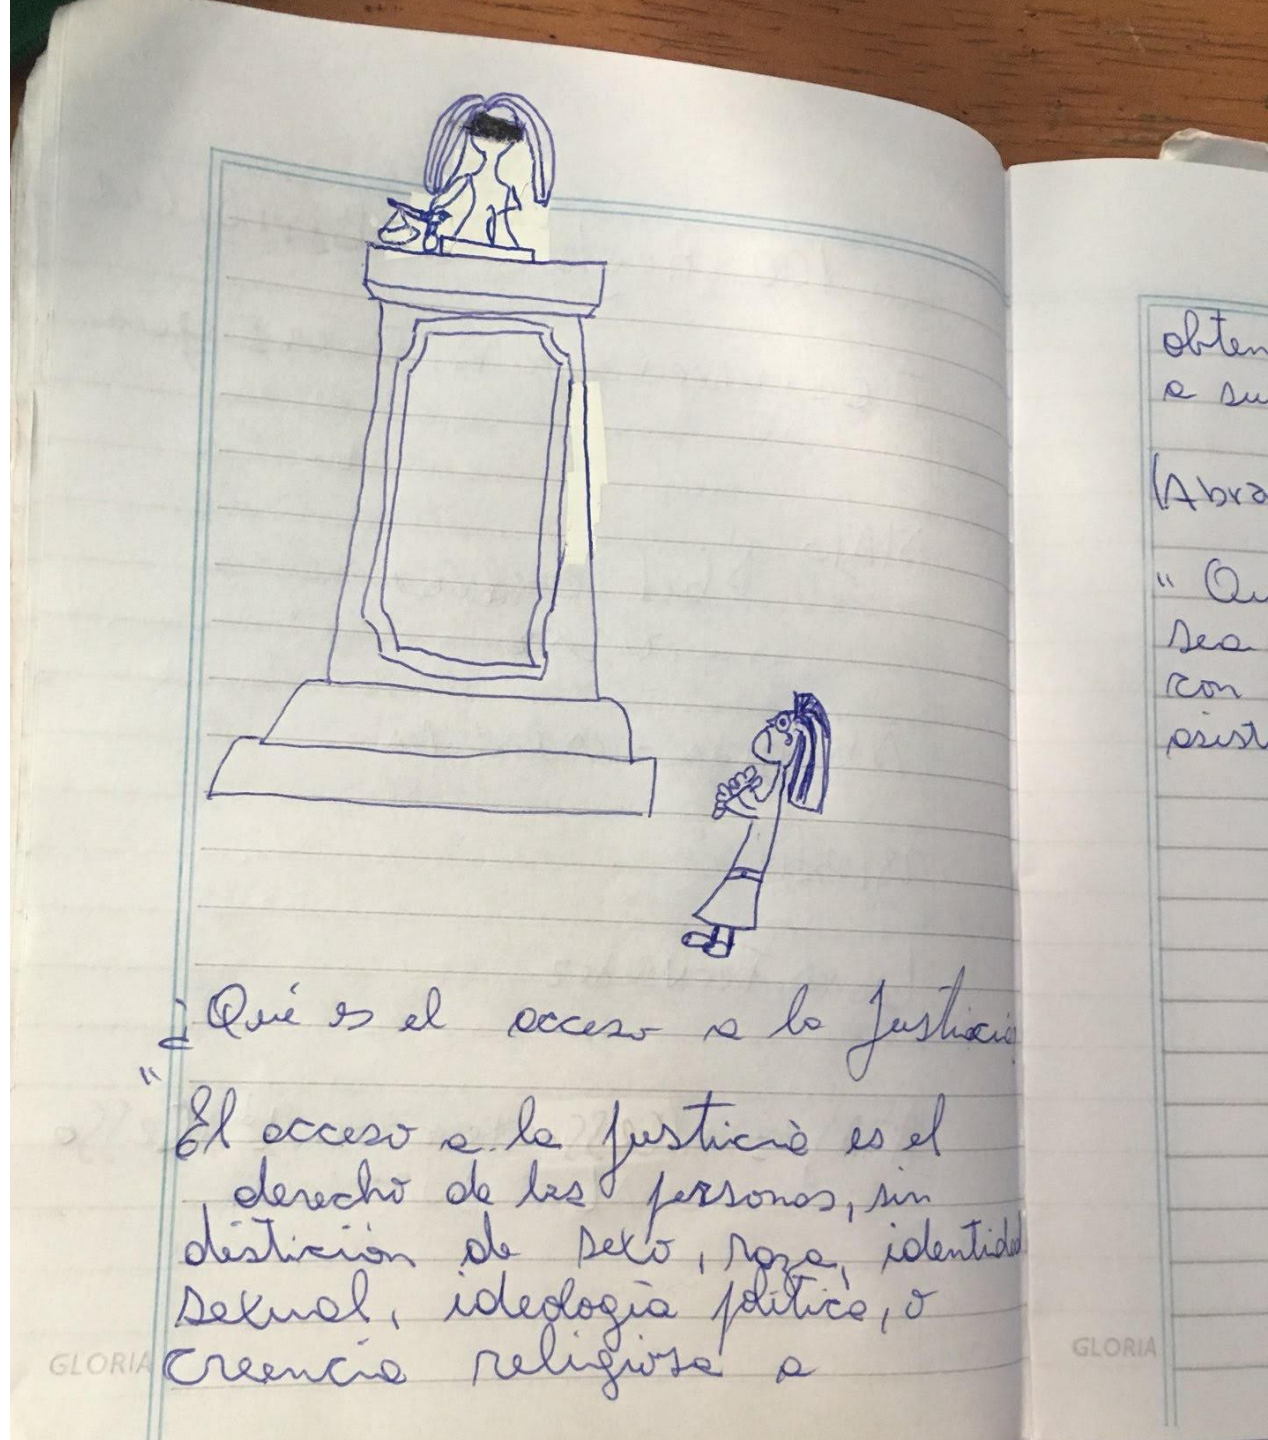 ¿Qué es el acceso a la Justicia
"
El acceso a la justicia es el
derecho de las personas, sin
distición de sexo, raza, identidad
sexual, ideología política, o
creencia religiosa a
GLORIA
obten
a su
(Abra
" Qu
sea
con
asist
GLORIA